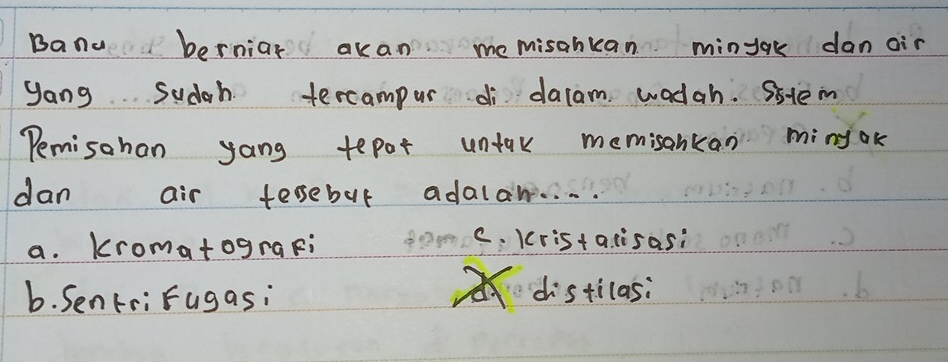 Banu berniat akan memisahkan minyak dan air
yang sudah tercampur di dalam wadah. Sstem
Pemisahan yang tepat untuk memisahkan minyak
dan air tesebut adalah....
a. Kromatografi c. Kristalisasi
b. Sentrifugasi d. distilasi